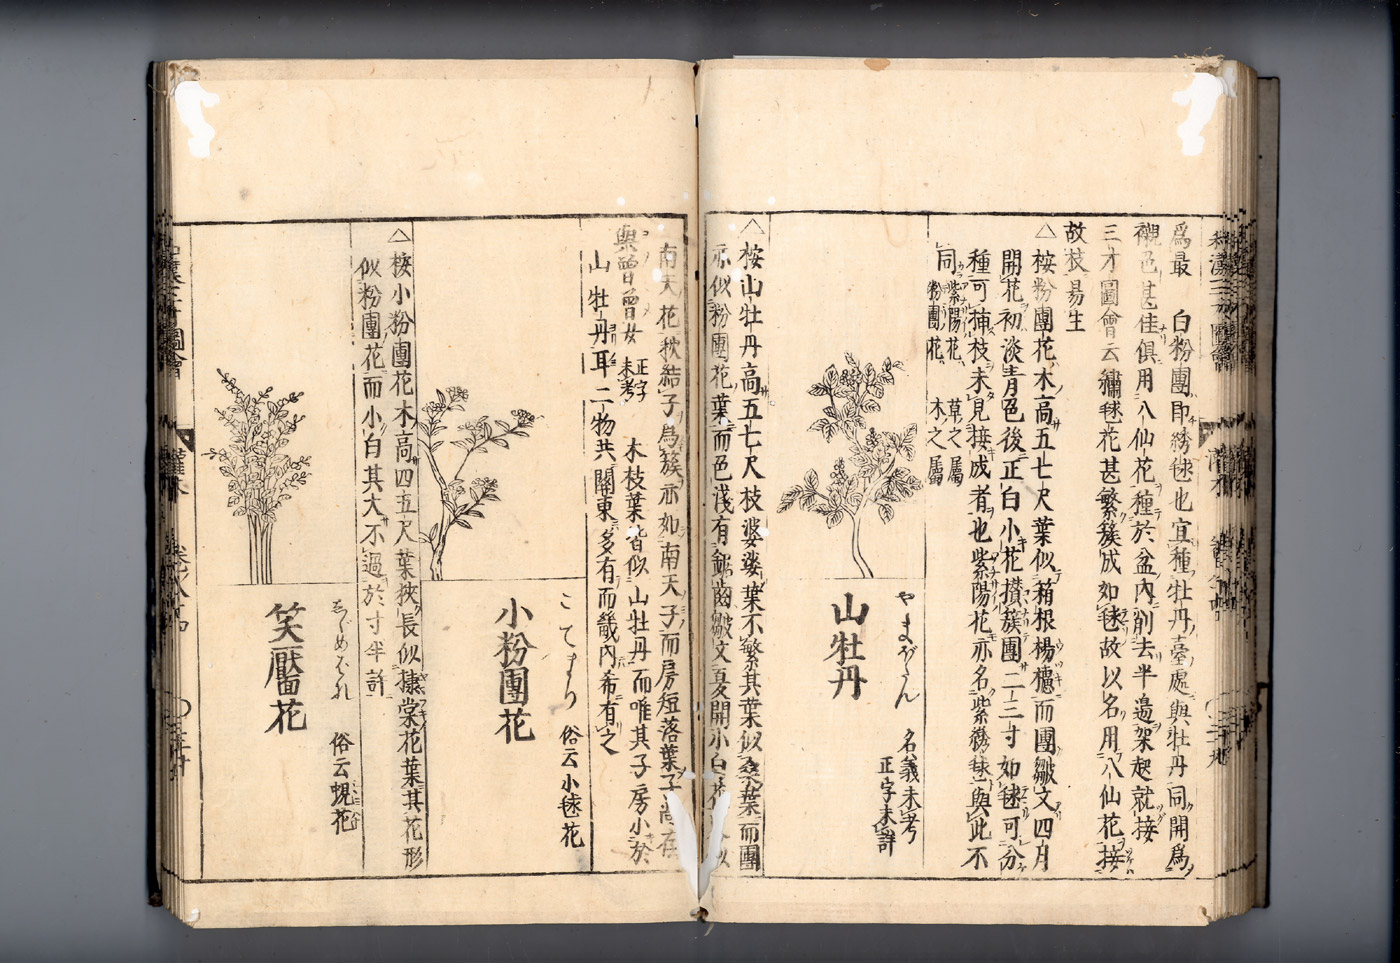 爲最　白粉團即綉毬也宜種牡丹臺處與牡丹同開爲
襯色甚佳俱用八仙花種於盆內削去半邉架起就接
三才圖會云繡毬花甚繁簇成如毬故以名用八仙花接
故枝易生
△桉粉團花木高五七尺葉似箱根楊櫨而團皺文四月
開花初淡青色後正白小花攅簇團二三寸如毬可分
種可揷枝未見接成者也紫陽花亦名紫繡毬與此不
同紫陽花草之屬
粉團花木之屬
やまぼたん
名義未考
正字未詳
山牡丹
△桉山牡丹高五七尺枝婆娑葉不繁其葉似桑葉而團
亦似粉團花葉而色淺有鋸齒皺文夏開小白花
南天花秋結子爲簇亦如南天子而房短落葉子尚存
與曽曽女
正字
未考
木枝葉皆似山牡丹而唯其子房小於
山牡丹耳二物共關東多有而畿內希有之
こてまり
俗云小毬花
小粉團花
△桉小粉團花木高四五尺葉狹長似棣棠花葉其花形
似粉團花而小白其大不過於寸半許
しゞめばな
俗云蜆花
笑靨花